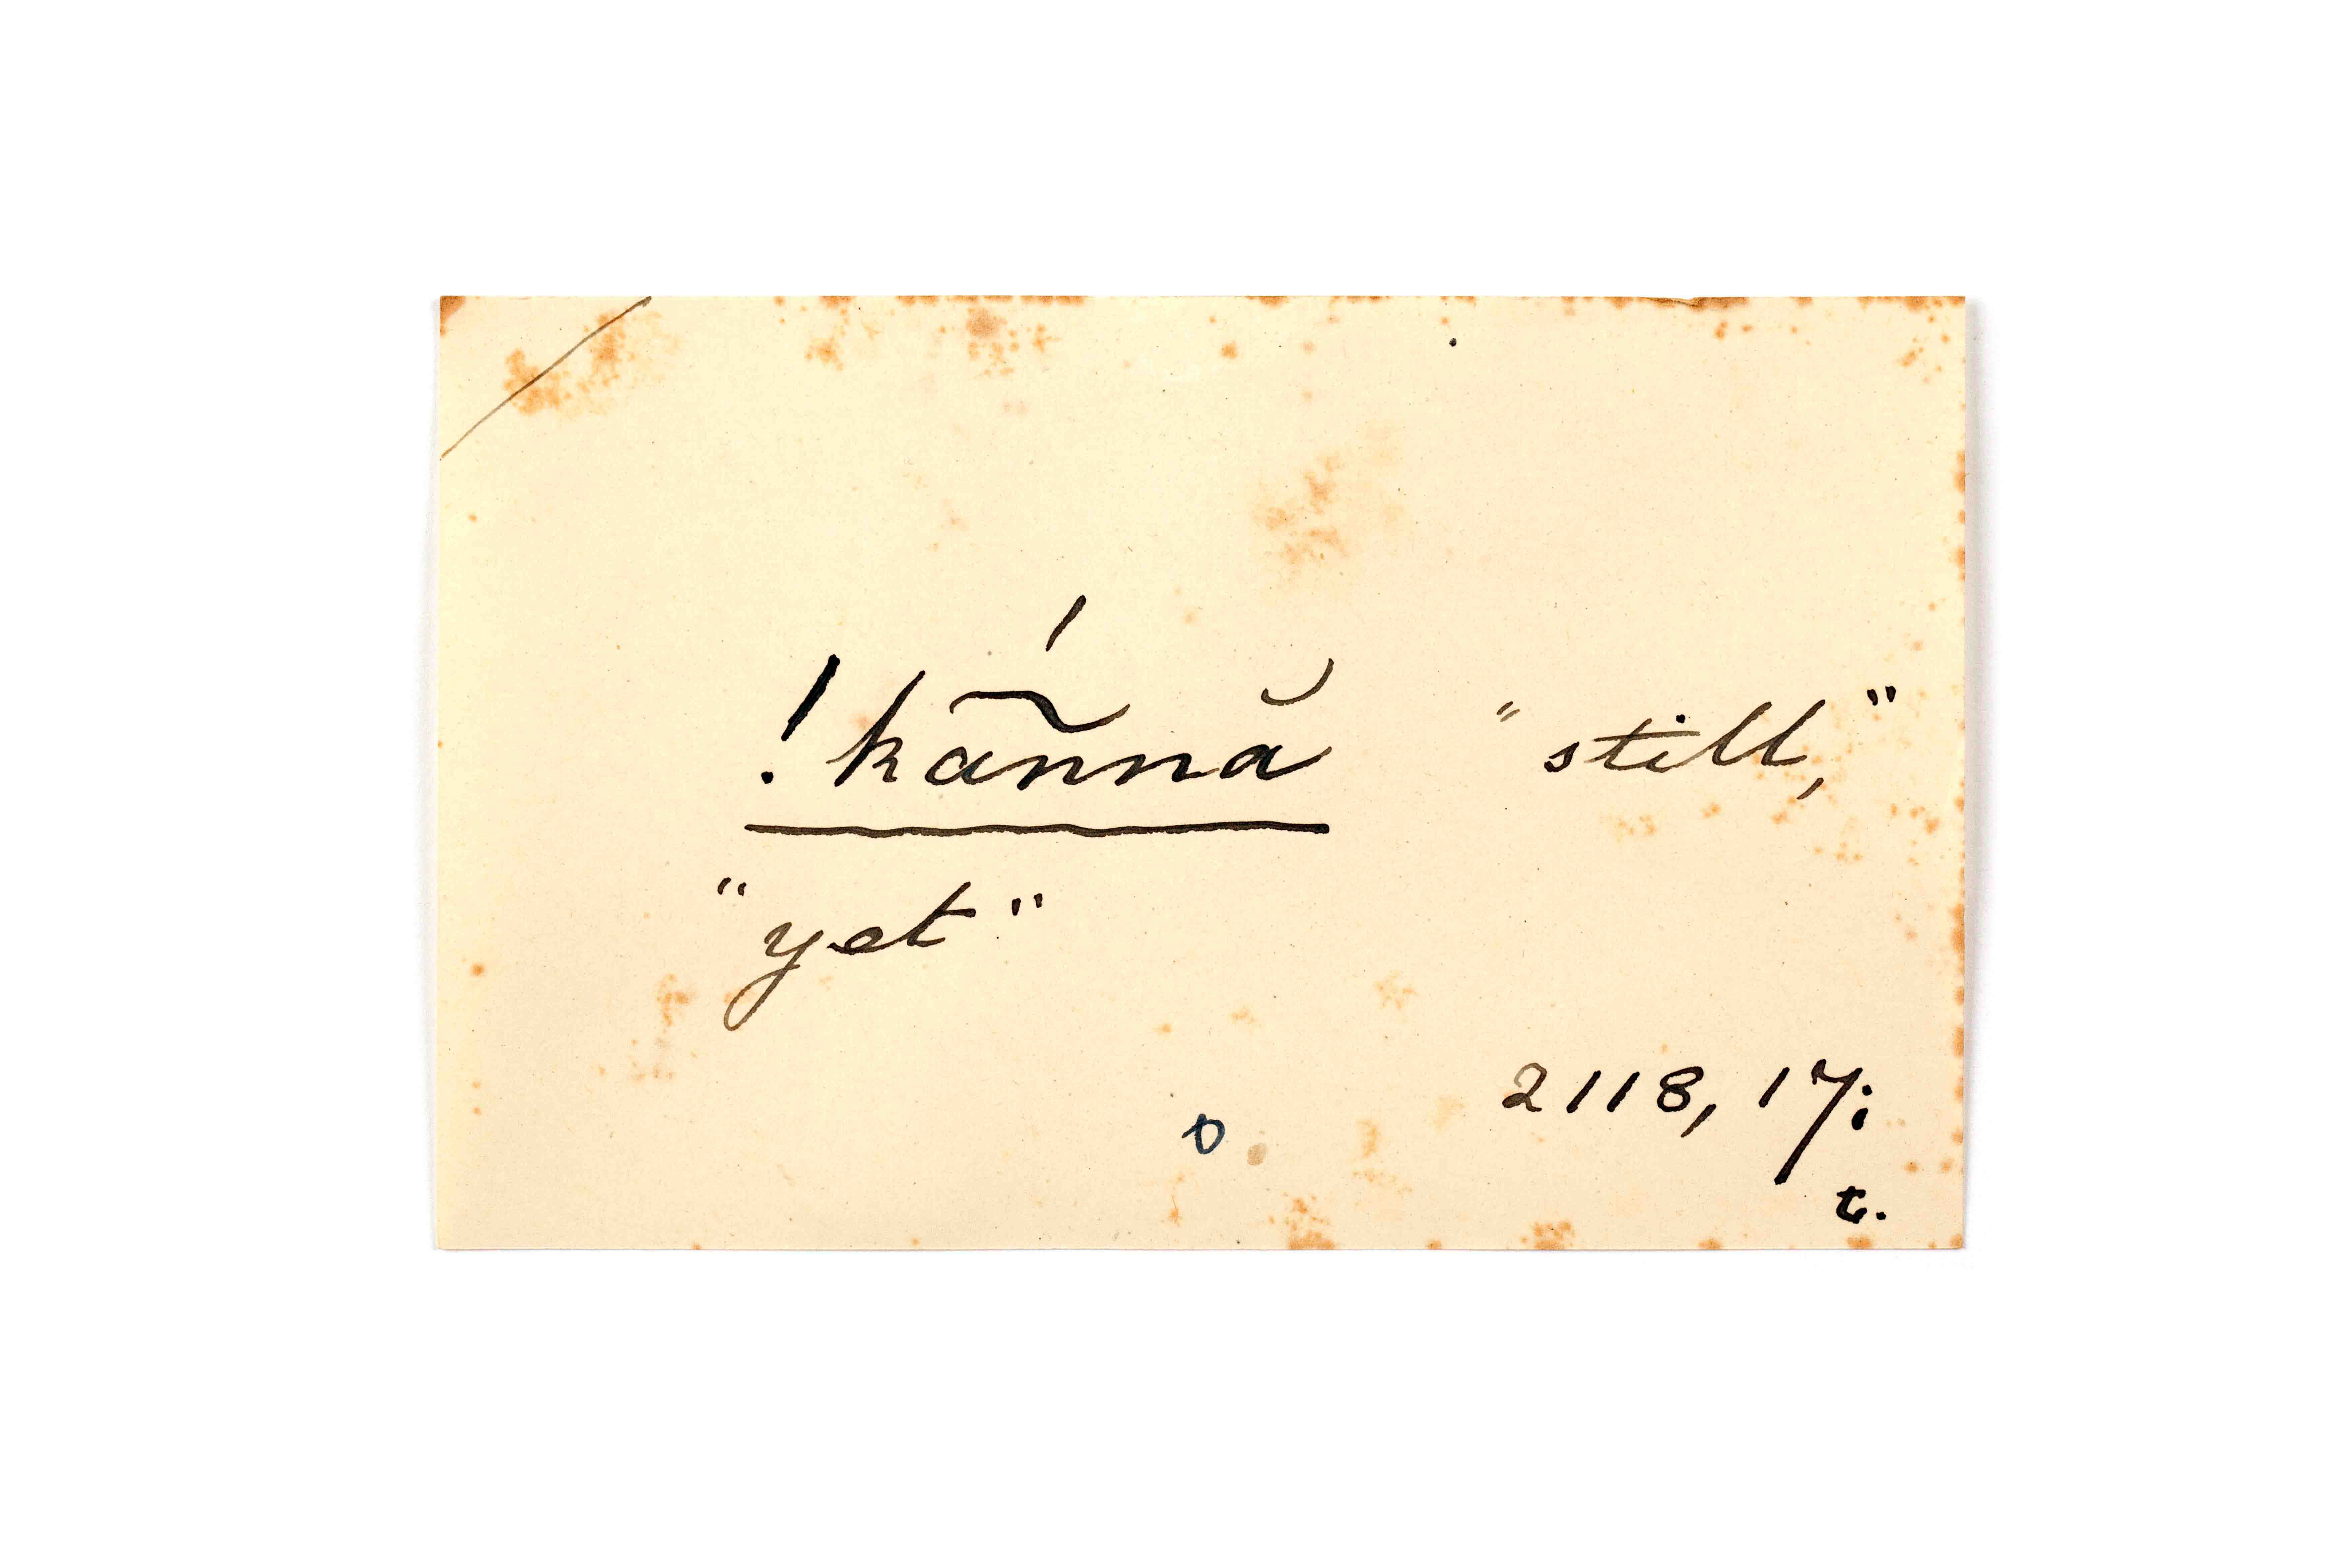 !kã́nnă "still,"
"yet"
2118, 17;
t.